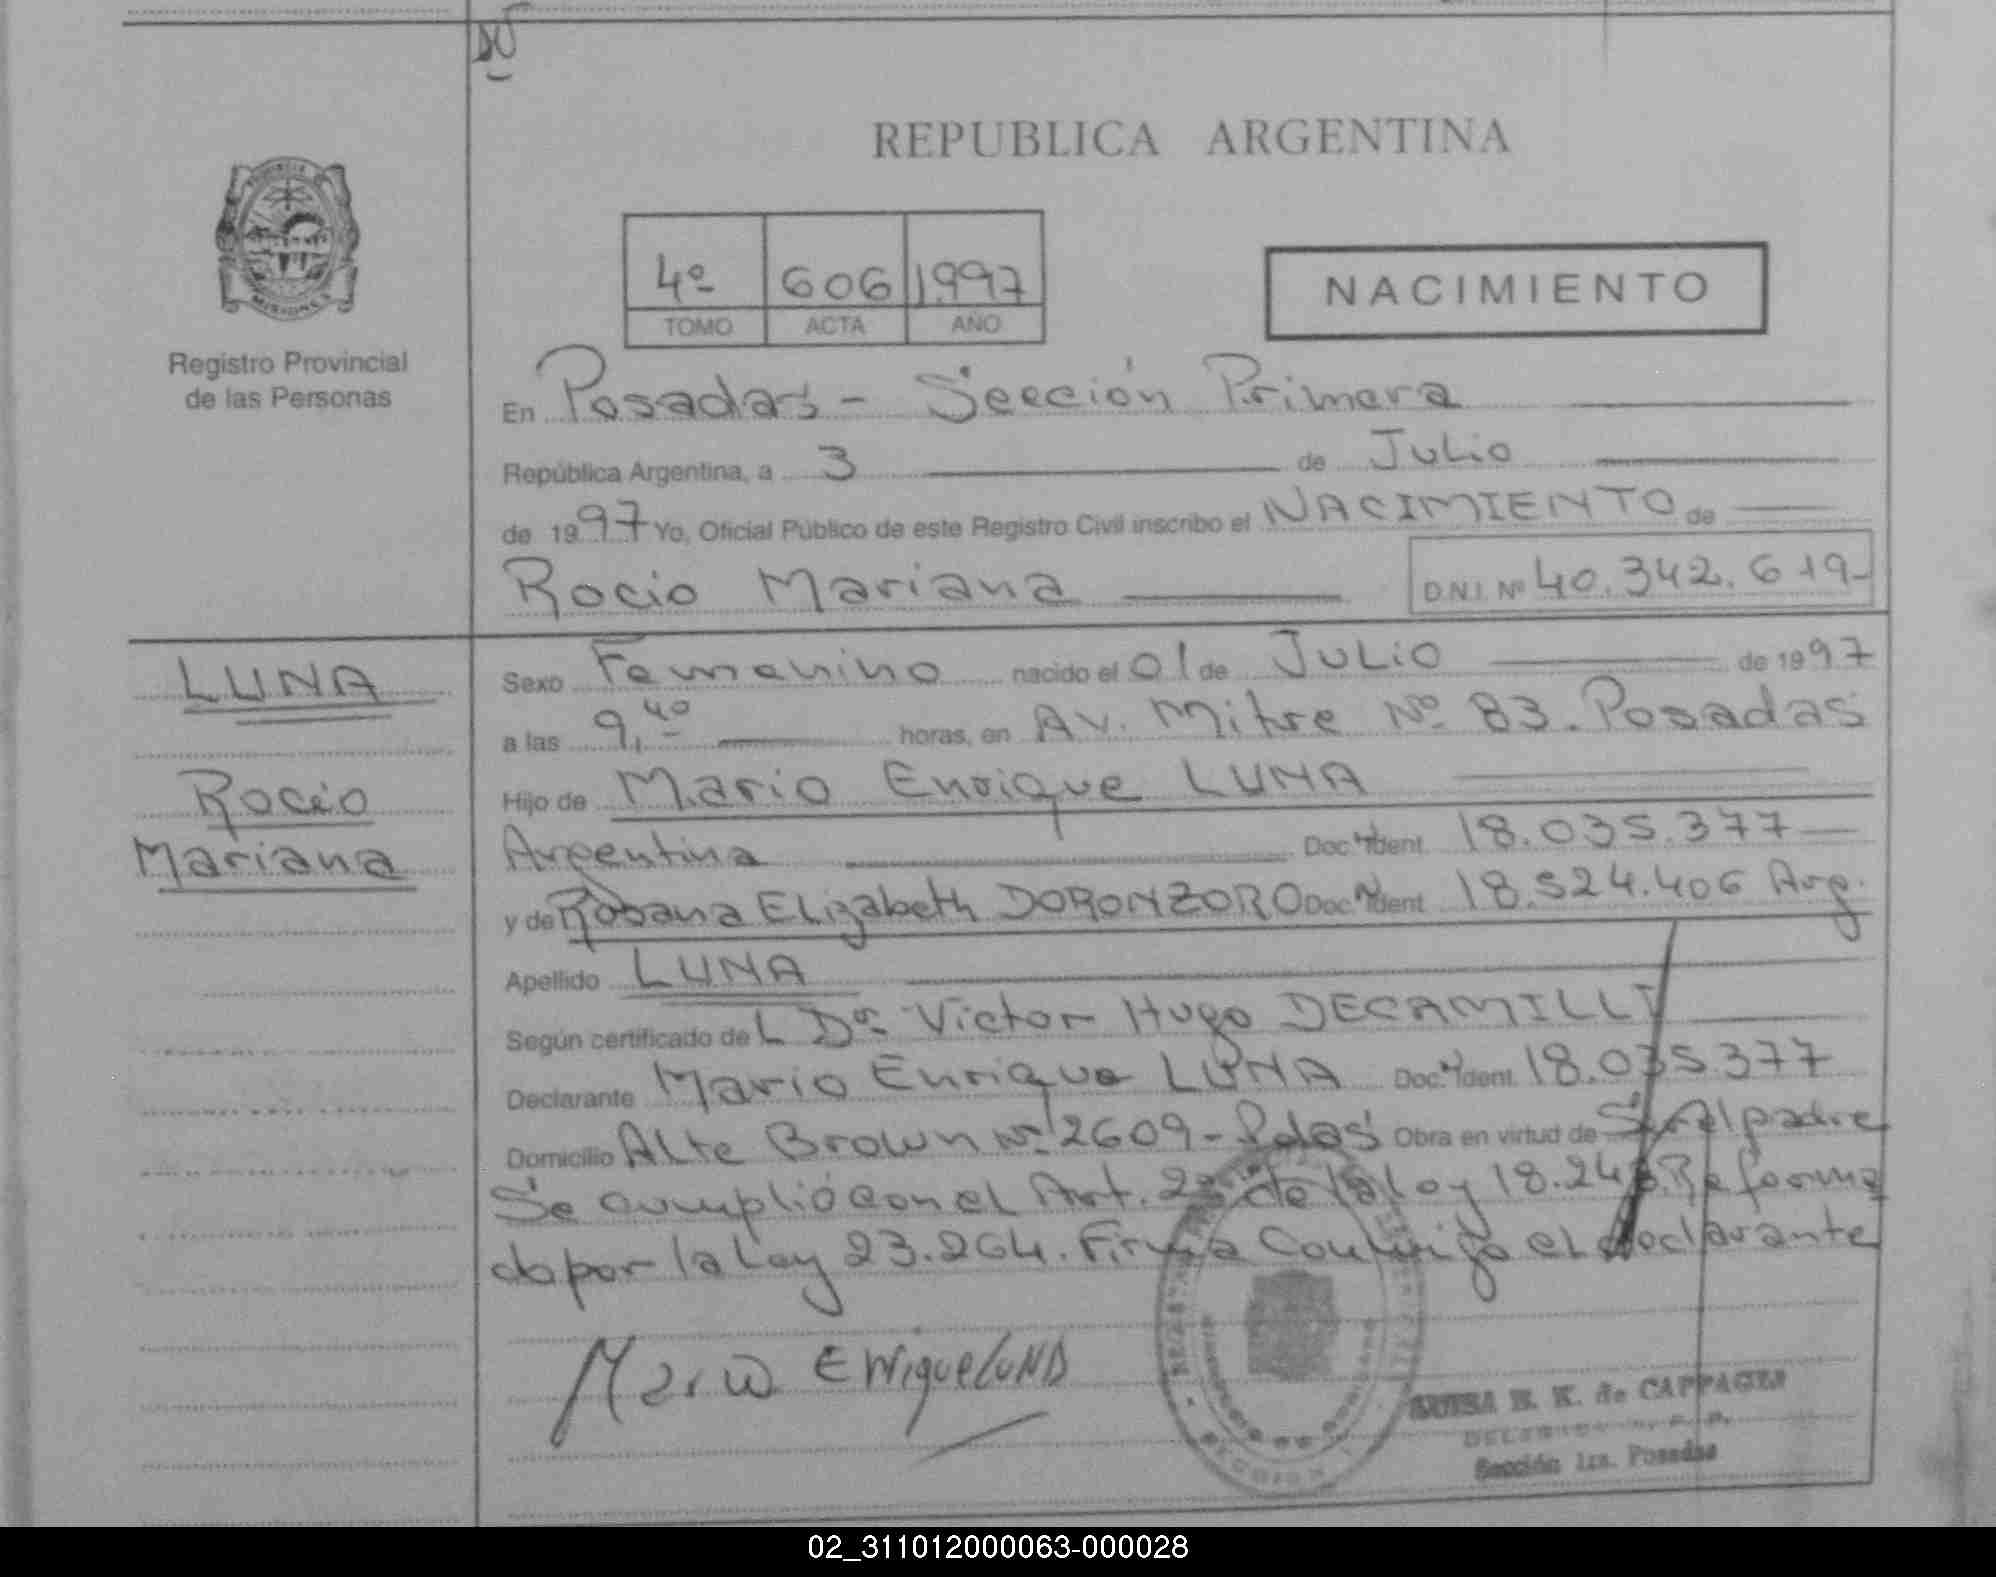 REPUBLICA ARGENTINA
4º 606 1997
TOMO ACTA AÑO
NACIMIENTO
Registro Provincial
de las Personas
En Posadas - Sección Primera
República Argentina, a 3 de Julio
de 1997 Yo, Oficial Público de este Registro Civil inscribo el NACIMIENTO de
Rocio Mariana
D.N.I. Nº 40.342.619-
LUNA
Rocio
Mariana
Sexo Femenino nacido el 01 de Julio de 1997
a las 9,40 horas, en Av. Mitre Nº 83. Posadas
Hijo de Mario Enrique LUNA
Argentina Doc. Ident. 18.035.377
y de Rosana Elizabeth DORONZORO Doc. Ident 18.524.406 Arg.
Apellido LUNA
Según certificado de L Dr. Victor Hugo DECAMILLI
Declarante Mario Enrique LUNA Doc. Ident. 18.035.377
Domicilio Alte Brown Nº 2609 - Pdas Obra en virtud de Ser el padre
Se cumplió con el Art. de la Ley 18.248. Reforma
do por la Ley 23.264. Firma Conmigo el declarante
Mario Enrique LUNA
LUISA B. K. de CAPPAGES
Sección 1ra. Posadas
02_311012000063-000028